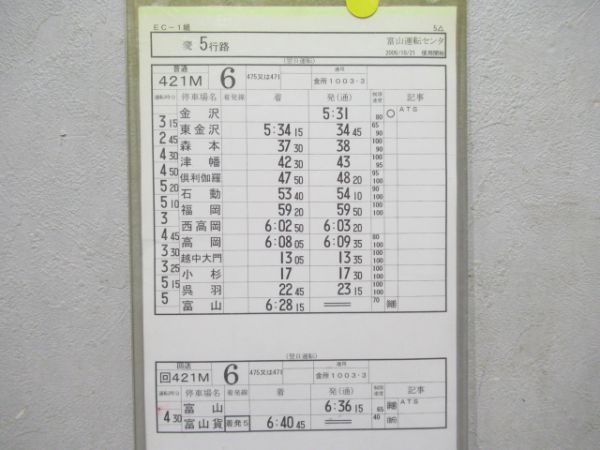 EC-1組 5△
変 5行路 富山運転センタ
2006/10/21 使用開始
(翌日運転)
普通 421M 6 475又は471 適用 金所1003-3
運転時分 停車場名 着発線 着 発(通) 制限速度 記事
金沢 5:31 80 ○ ATS
3 15 東金沢 5:34 15 34 45 65 90
2 45 森本 37 30 38 90 100
4 30 津幡 42 30 43 95
4 50 倶利伽羅 47 50 48 20 95 100
5 20 石動 53 40 54 10 100 90
5 10 福岡 59 20 59 50 100 100
3 西高岡 6:02 50 6:03 20
4 45 高岡 6:08 05 6:09 35 80 100
3 30 越中大門 13 05 13 35 100 100
3 25 小杉 17 17 30 100 100
5 15 呉羽 22 45 23 15 100
5 富山 6:28 15 70
(翌日運転)
回送 回421M 6 475又は471 適用 金所1003-3
運転時分 停車場名 着発線 着 発(通) 制限速度 記事
富山 6:36 15 65 ATS
4 30 富山貨 着発5 6:40 45 40